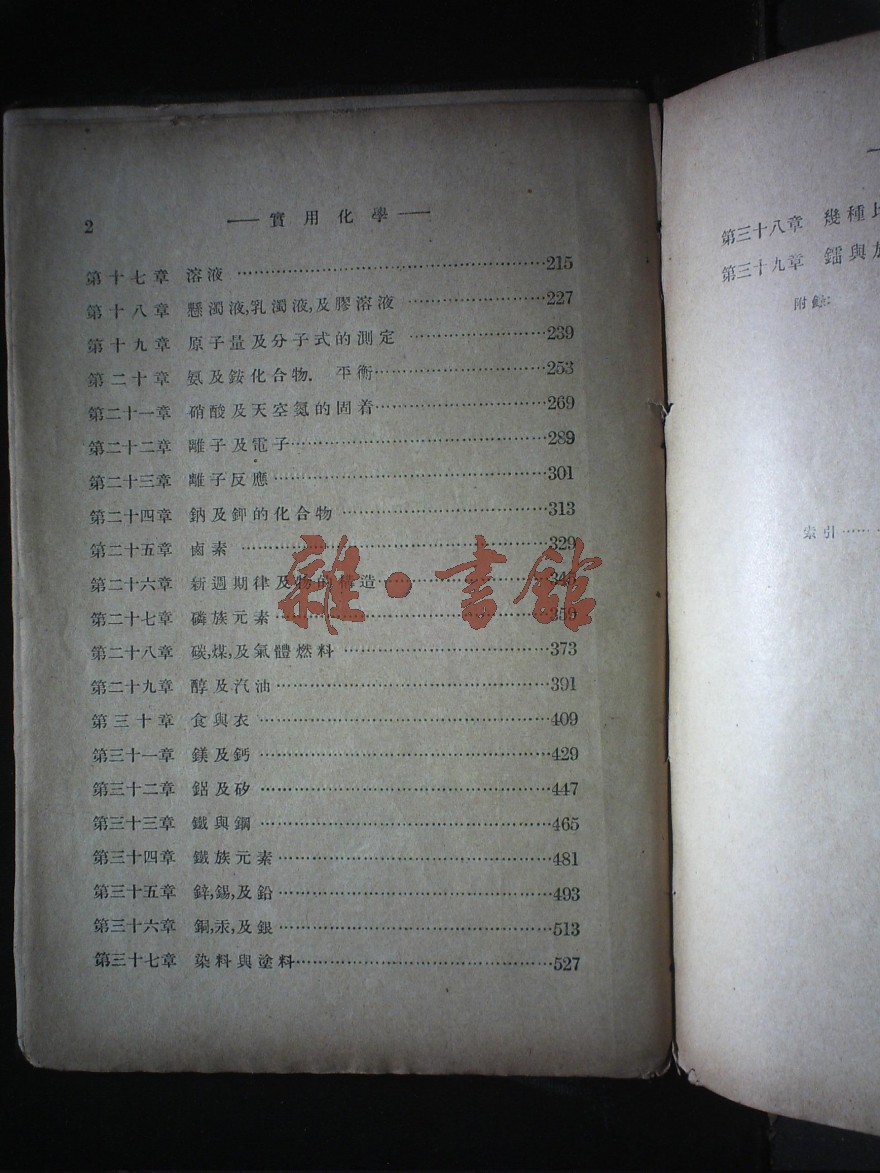 2 ——實用化學——
第十七章 溶液 …………………………215
第十八章 懸濁液,乳濁液,及膠溶液 …………227
第十九章 原子量及分子式的測定 …………239
第二十章 氨及銨化合物. 平衡…………253
第二十一章 硝酸及天空氮的固着…………269
第二十二章 離子及電子…………289
第二十三章 離子反應…………301
第二十四章 鈉及鉀的化合物…………313
第二十五章 鹵素 …………329
第二十六章 新週期律及物的構造…………345
第二十七章 磷族元素…………359
第二十八章 碳,煤,及氣體燃料 …………373
第二十九章 醇及汽油…………391
第三十章 食與衣…………409
第三十一章 鎂及鈣…………429
第三十二章 鋁及矽…………447
第三十三章 鐵與鋼…………465
第三十四章 鐵族元素…………481
第三十五章 鋅,錫,及鉛…………493
第三十六章 銅,汞,及銀…………513
第三十七章 染料與塗料…………527
雜·書館
第三十八章 幾種
第三十九章 鐳與
附錄:
索引……